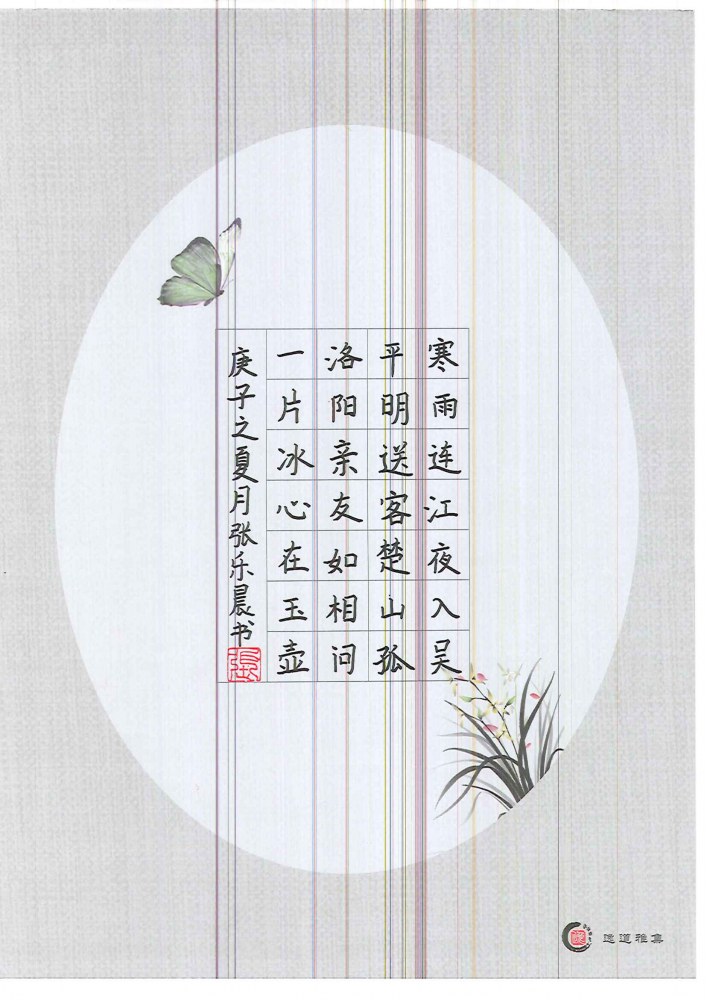 寒雨连江夜入吴
平明送客楚山孤
洛阳亲友如相问
一片冰心在玉壶
庚子之夏月张乐晨书
張
逸道雅集